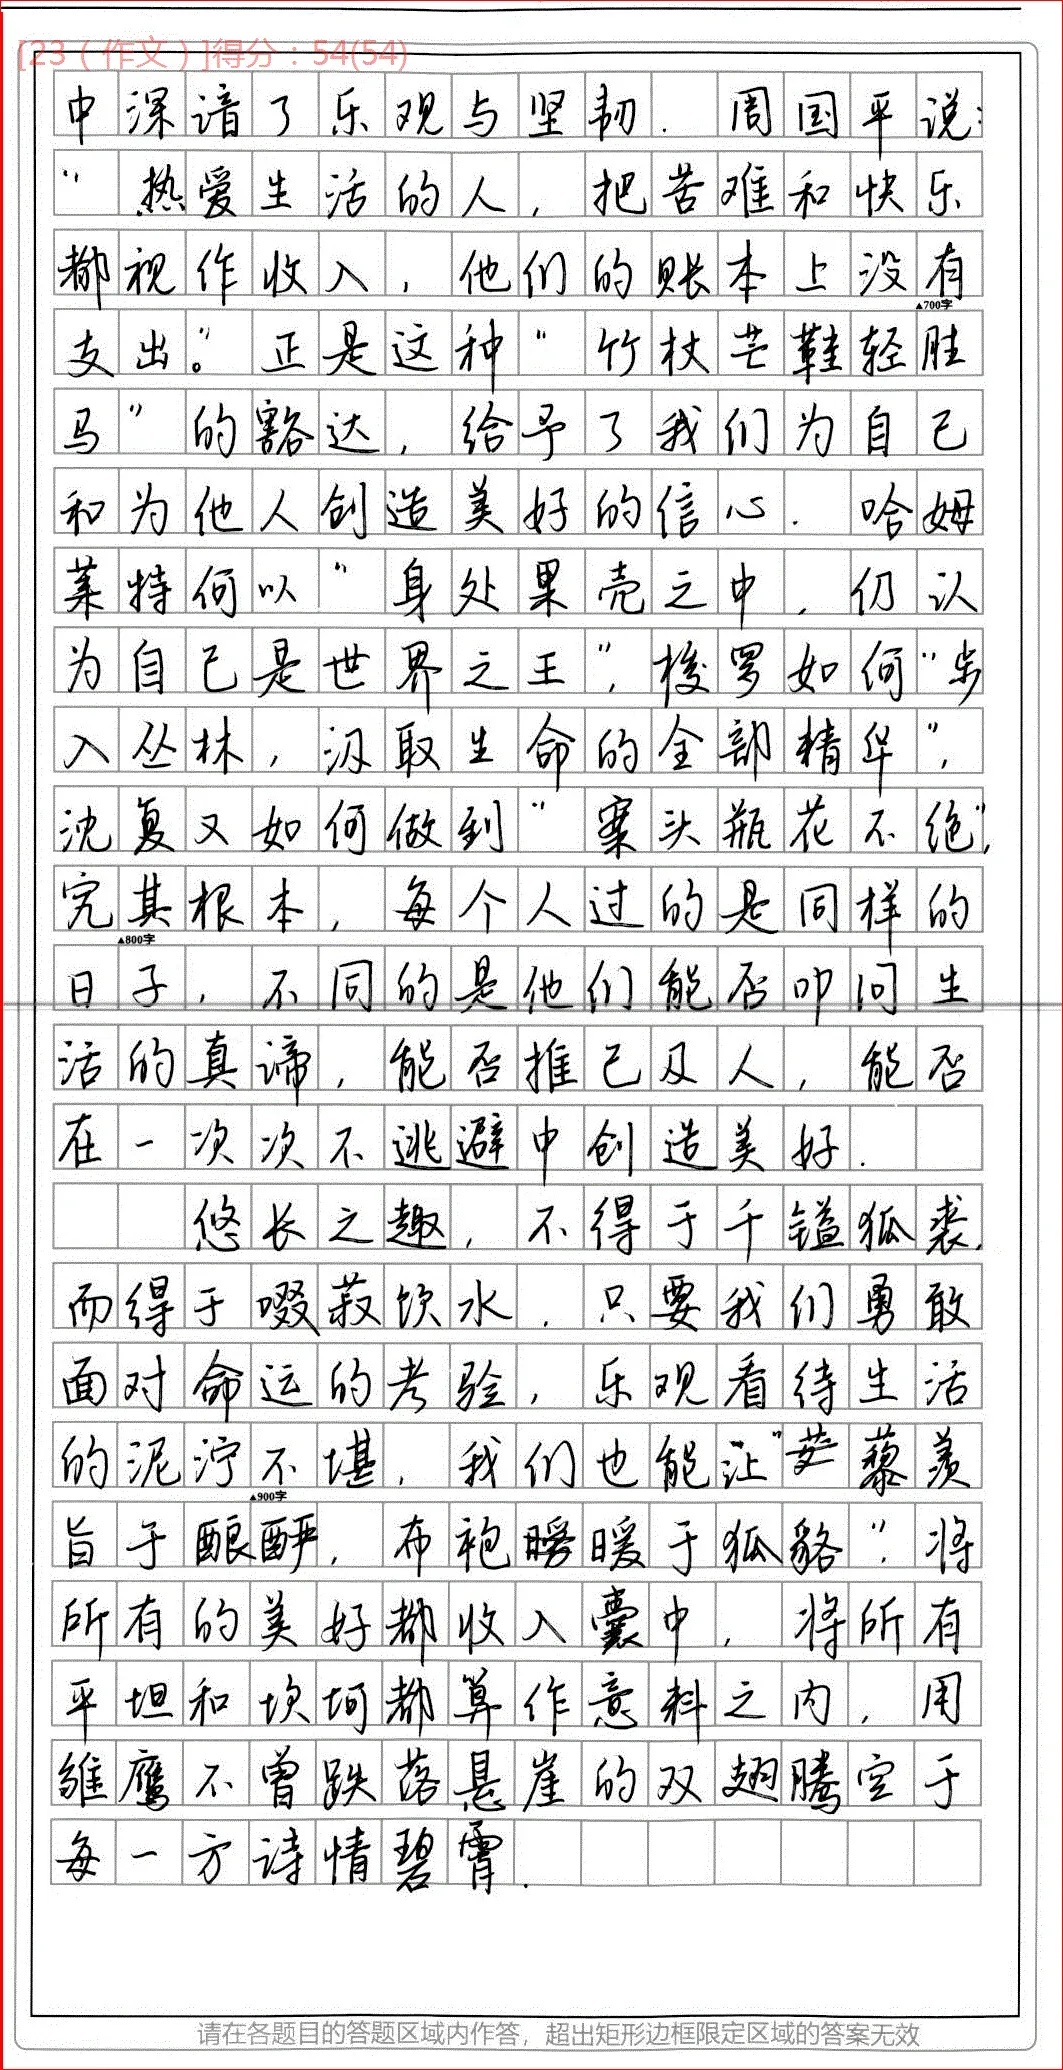 [23（作文）]得分：54(54)
中深谙了乐观与坚韧．周国平说：
“热爱生活的人，把苦难和快乐
都视作收入，他们的账本上没有
▲700字
支出。”正是这种“竹杖芒鞋轻胜
马”的豁达，给予了我们为自己
和为他人创造美好的信心．哈姆
莱特何以“身处果壳之中，仍认
为自己是世界之王”，梭罗如何“步
入丛林，汲取生命的全部精华”，
沈复又如何做到“案头瓶花不绝”，
究其根本，每个人过的是同样的
▲800字
日子，不同的是他们能否叩问生
活的真谛，能否推己及人，能否
在一次次不逃避中创造美好．
悠长之趣，不得于千镒狐裘，
而得于啜菽饮水．只要我们勇敢
面对命运的考验，乐观看待生活
的泥泞不堪，我们也能让“藜羹
▲900字
旨于酿酽，布袍暖于狐貉”，将
所有的美好都收入囊中，将所有
平坦和坎坷都算作意料之内，用
雏鹰不曾跌落悬崖的双翅腾空于
每一方诗情碧霄．
请在各题目的答题区域内作答，超出矩形边框限定区域的答案无效